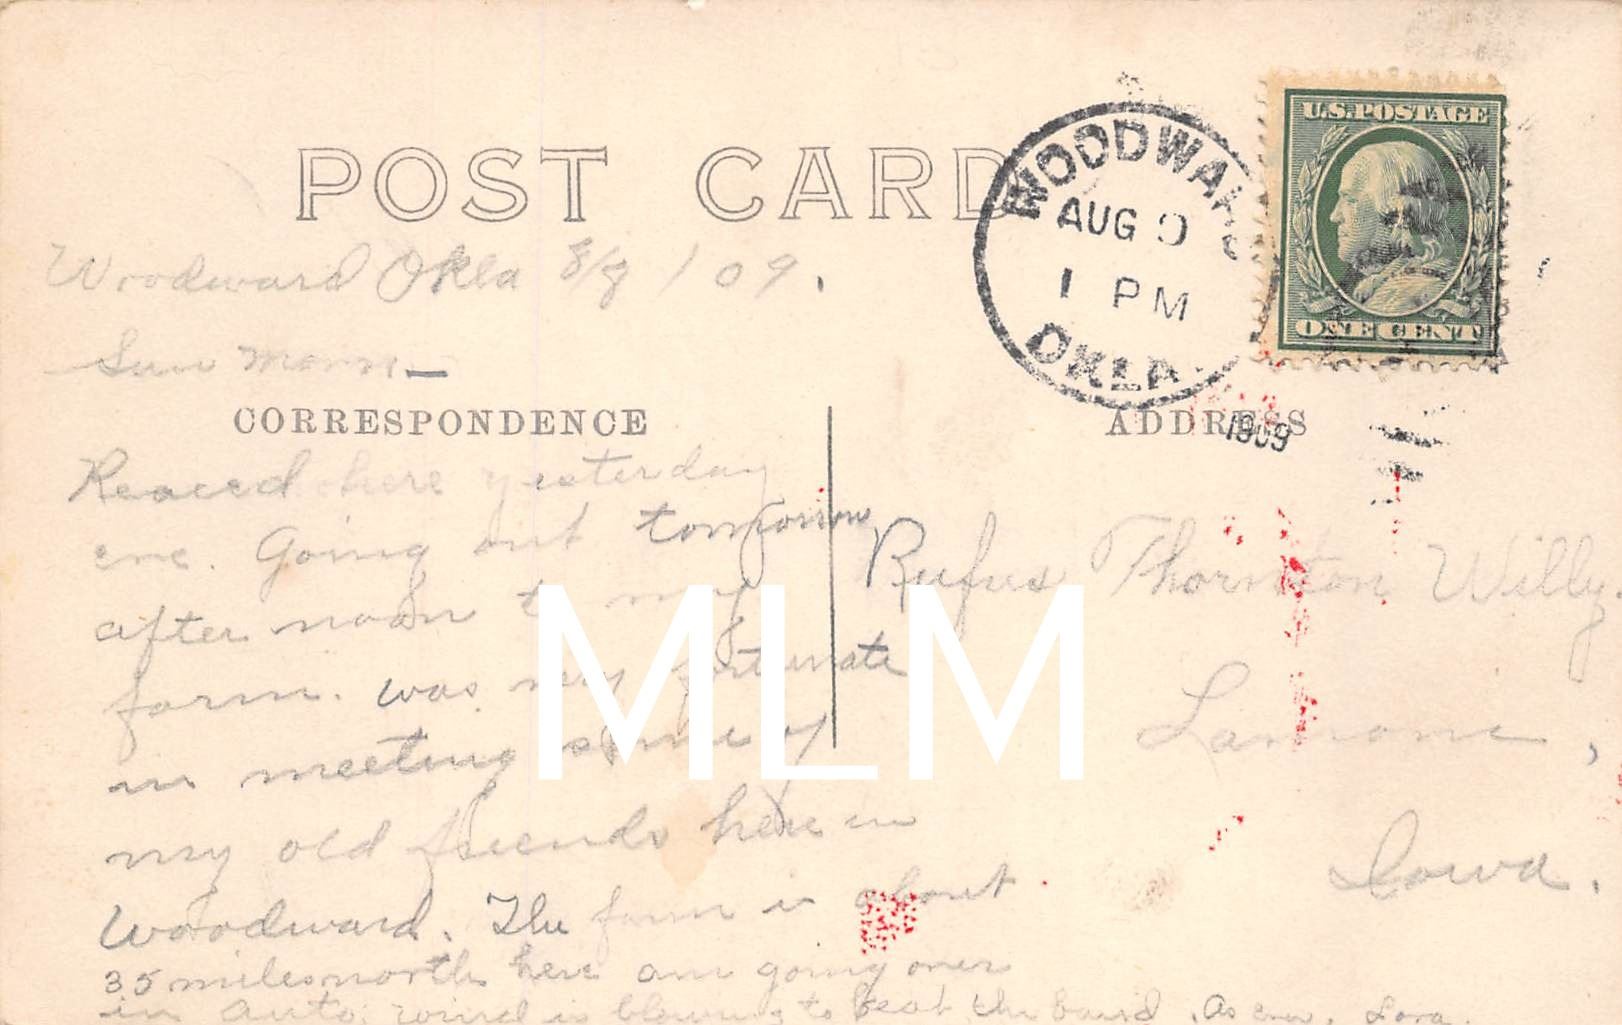 POST CARD
WOODWARD
AUG 9
1 PM
OKLA.
1909
U.S. POSTAGE
ONE CENT
Woodward Okla 8/8/09.
Sun Morn—
CORRESPONDENCE
ADDRESS
Reaced here yesterday
eve. Going out tomorrow
after noon to my
farm. was very fortunate
in meeting some of
my old friends here in
Woodward. The farm is about
35 miles north here am going over
in Auto. wind is blowing to beat the band. As ever, Lora.
Rufus Thornton Willy.
Lamoni,
Iowa.
MLM